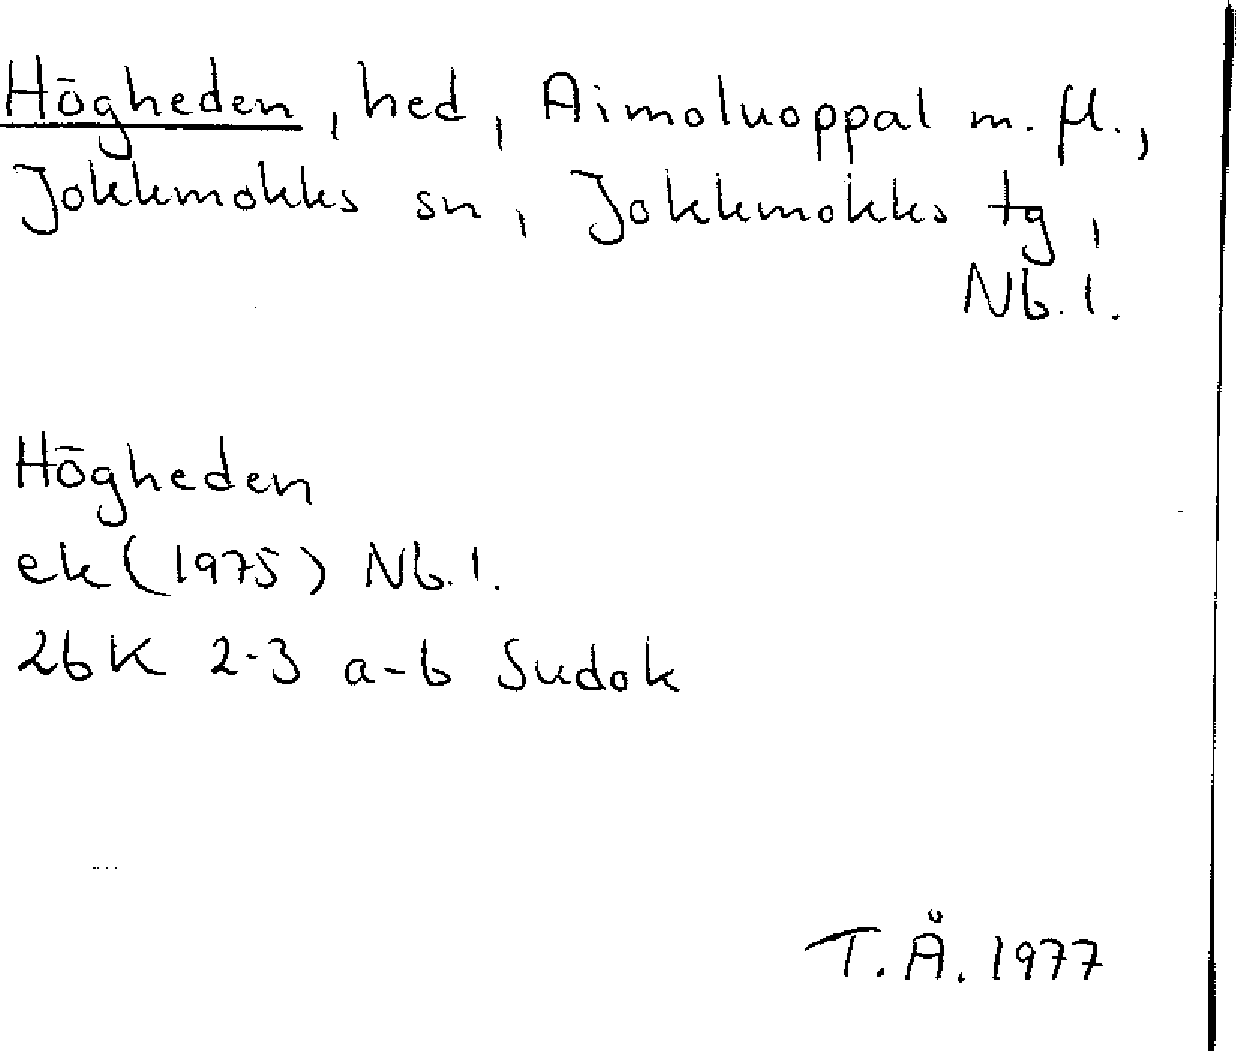 Högheden, hed, Aimoluoppal m. fl.,
Jokkmokks sn, Jokkmokks tg,
Nb. l.
Högheden
ek (1975) Nb. l.
26 K 2-3 a-b Sudok
T. Å. 1977